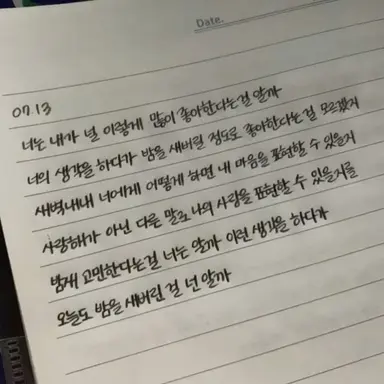 Date.
07.13
너는 내가 널 이렇게 많이 좋아한다는걸 알까
너의 생각을 하다가 밤을 새버릴 정도로 좋아한다는걸 모르겠지
새벽내내 너에게 어떻게 하면 내 마음을 표현할 수 있을지
사랑해가 아닌 다른 말로 나의 사랑을 표현할 수 있을지를
밤새 고민한다는걸 너는 알까 이런 생각을 하다가
오늘도 밤을 새버린 걸 넌 알까